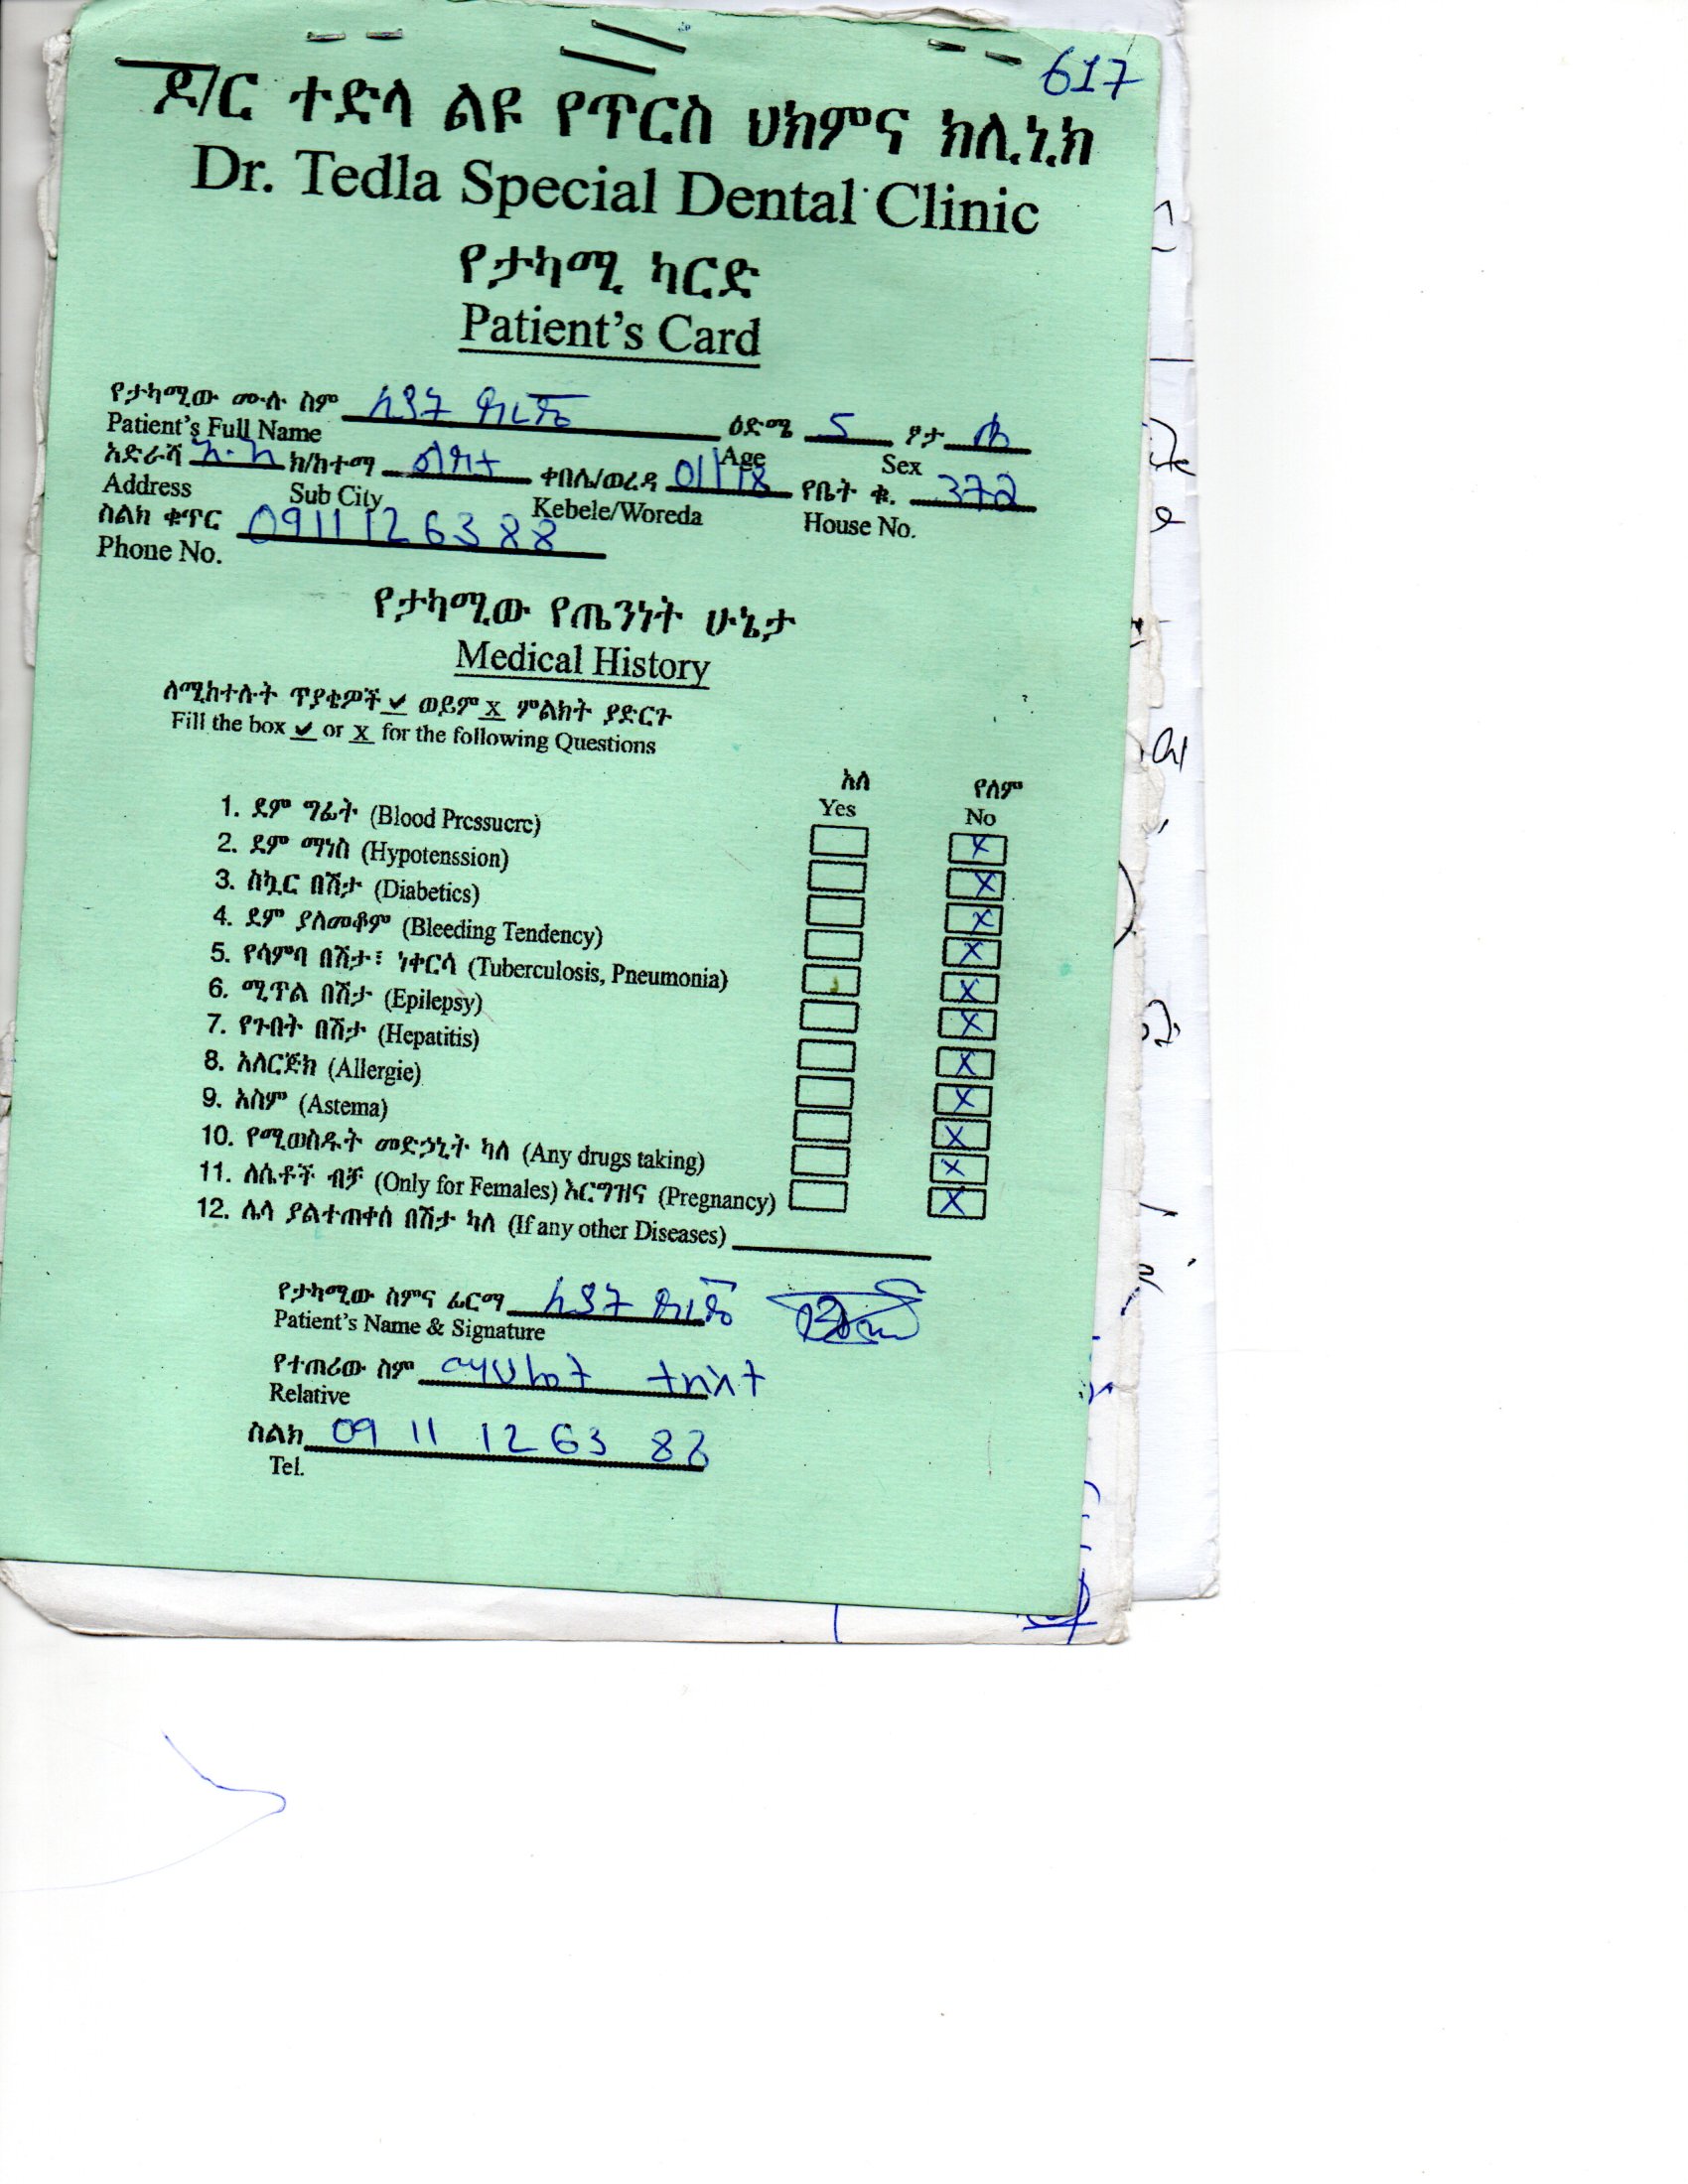 617
ዶ/ር ተድላ ልዩ የጥርስ ህክምና ክሊኒክ
Dr. Tedla Special Dental Clinic
የታካሚ ካርድ
Patient's Card
የታካሚው ሙሉ ስም ዕድሜ 5 ፆታ
Patient's Full Name Age Sex
አድራሻ አ.አ ክ/ከተማ ልደታ ቀበሌ/ወረዳ 01/18 የቤት ቁ. 372
Address Sub City Kebele/Woreda House No.
ስልክ ቁጥር 0911126388
Phone No.
የታካሚው የጤንነት ሁኔታ
Medical History
ለሚከተሉት ጥያቄዎች ✔ ወይም x ምልክት ያድርጉ
Fill the box ✔ or x for the following Questions
አለ የለም
Yes No
1. ደም ግፊት (Blood Pressuere) X
2. ደም ማነስ (Hypotenssion) X
3. ስኳር በሽታ (Diabetics) X
4. ደም ያለመቆም (Bleeding Tendency) X
5. የሳምባ በሽታ፣ ነቀርሳ (Tuberculosis, Pneumonia) X
6. ሚጥል በሽታ (Epilepsy) X
7. የጉበት በሽታ (Hepatitis) X
8. አለርጅክ (Allergie) X
9. አስም (Astema) X
10. የሚወስዱት መድኃኒት ካለ (Any drugs taking) X
11. ለሴቶች ብቻ (Only for Females) እርግዝና (Pregnancy) X
12. ሌላ ያልተጠቀሰ በሽታ ካለ (If any other Diseases)
የታካሚው ስምና ፊርማ
Patient's Name & Signature
የተጠሪው ስም ማህሌት
Relative
ስልክ 09 11 12 63 88
Tel.